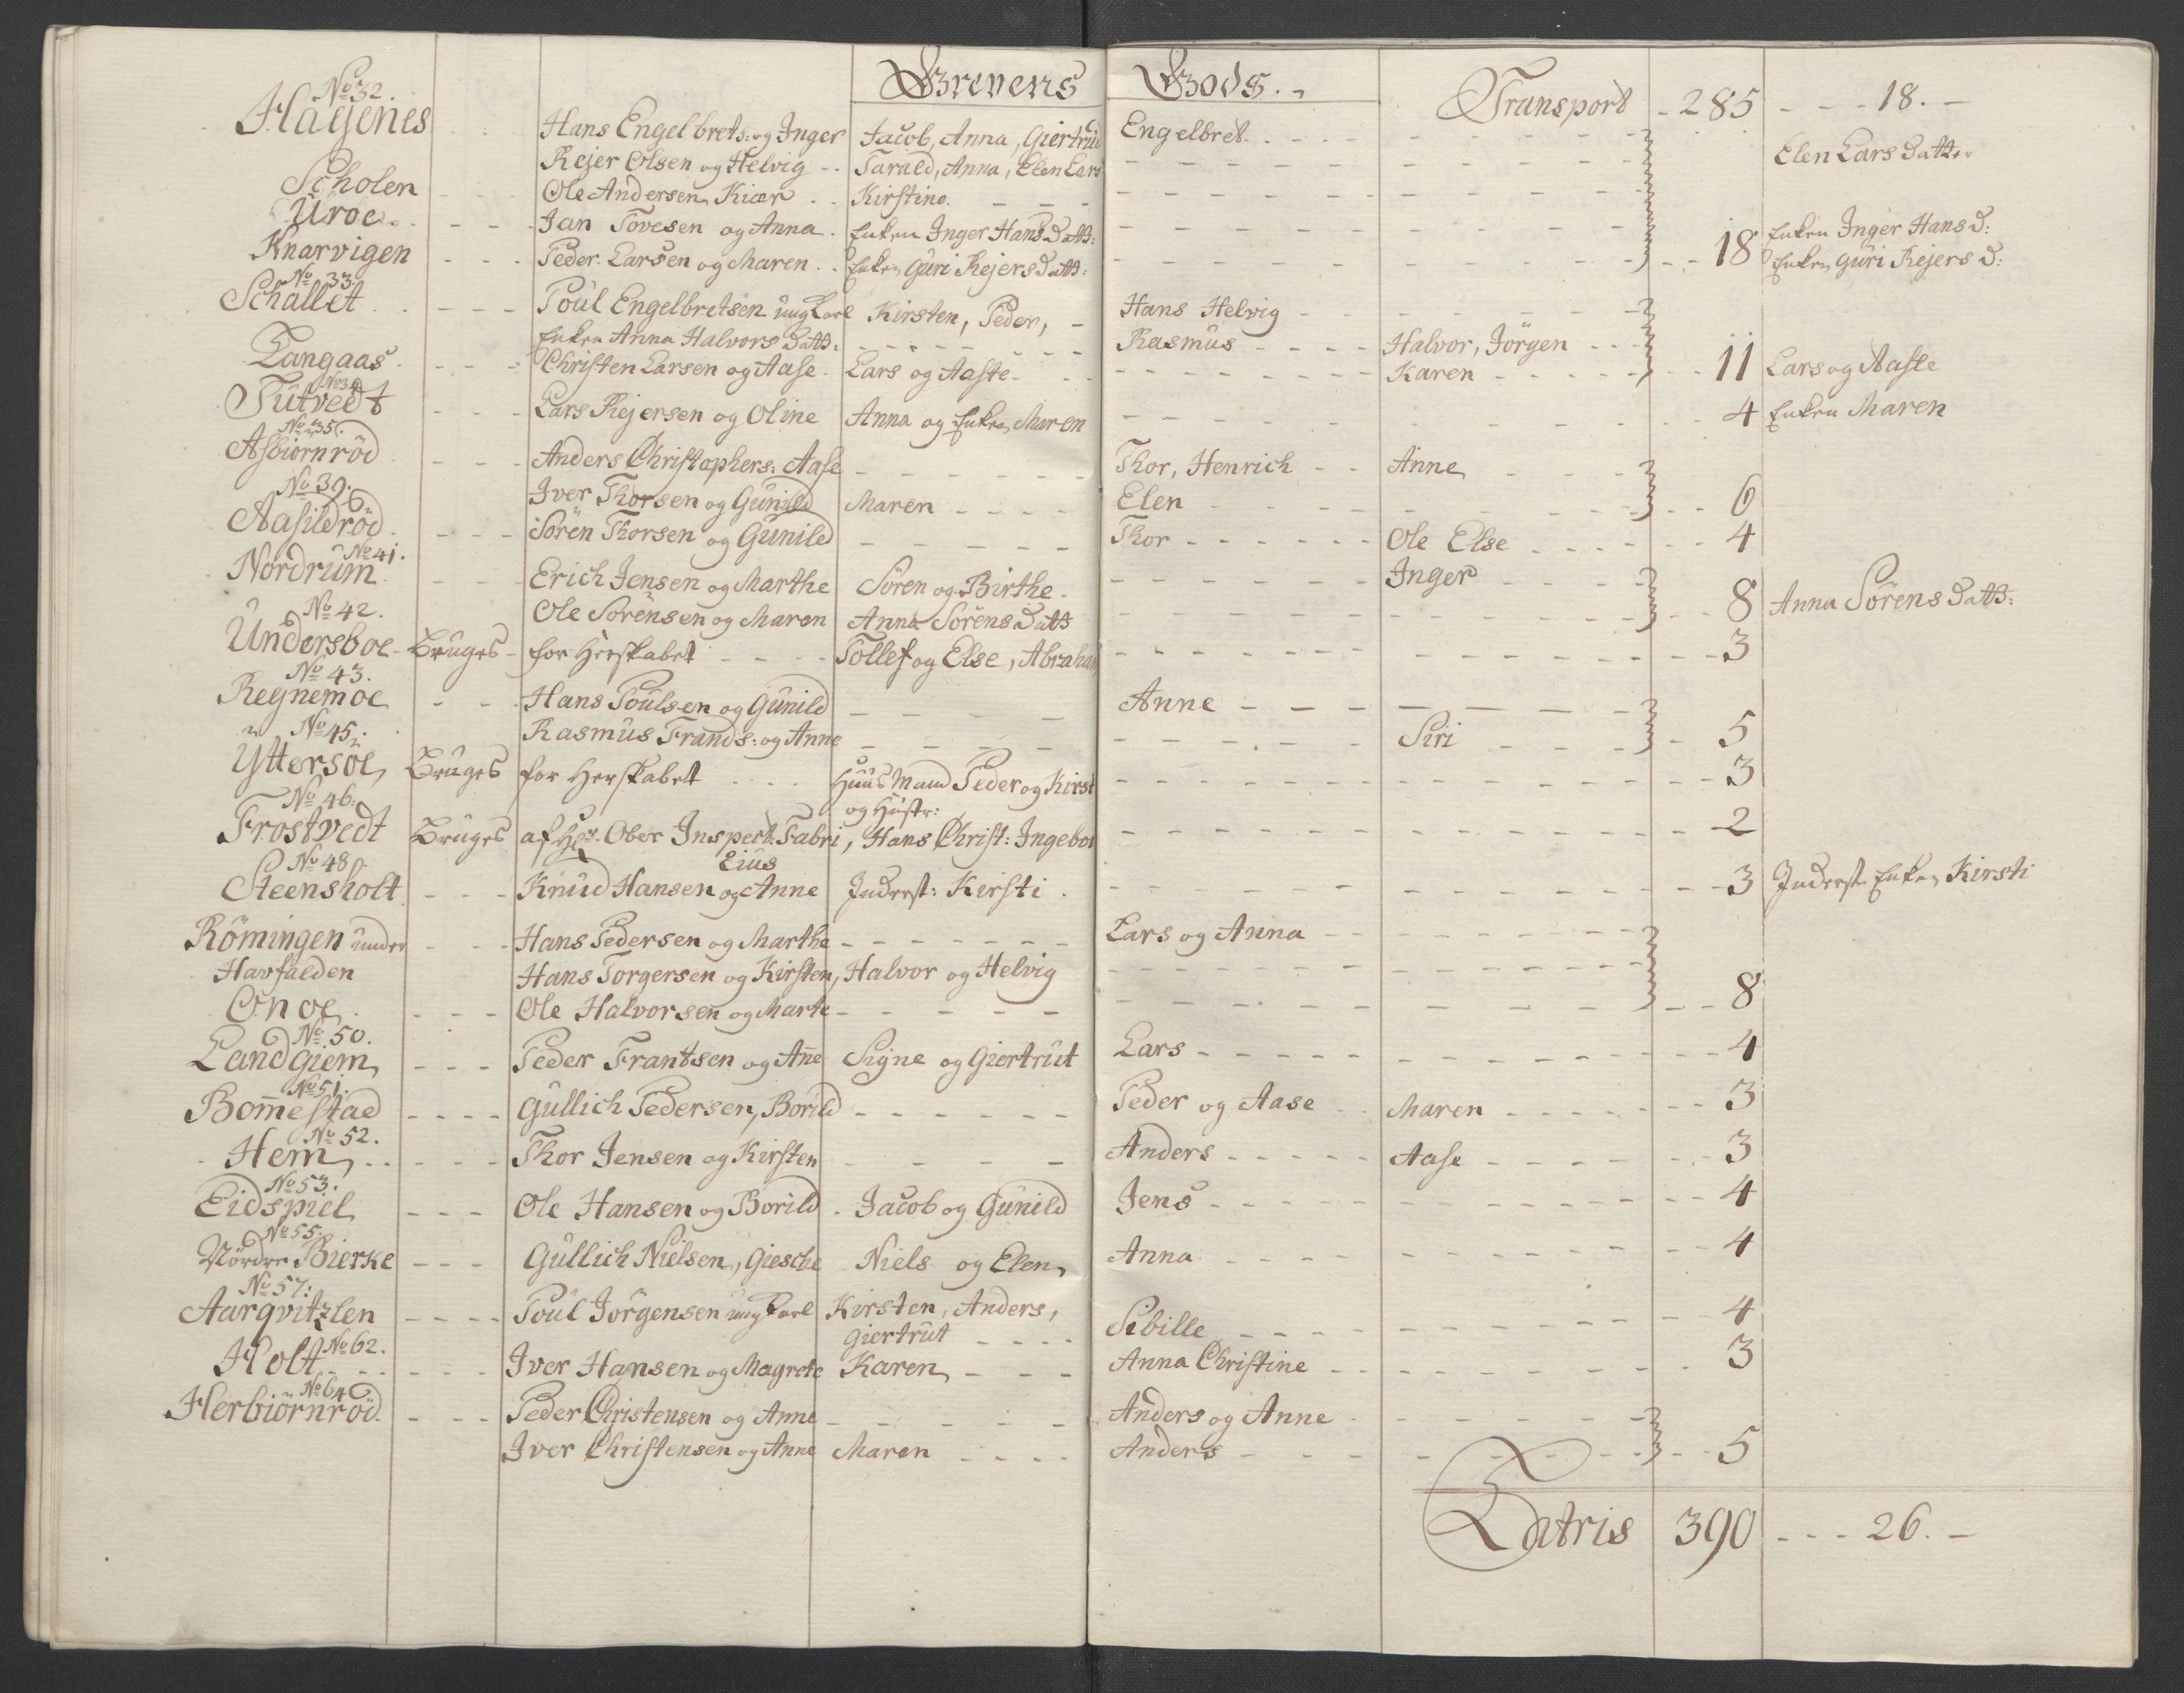 Grevens Gods.
Transport - 285 - - - 18. -
No 32.
Hagenes Hans Engelbrets: og Inger Jacob, Anna, Giertrud Engelbret.
Rejer Olsen og Helvig - Tarald, Anna, Elen Lars Elen Lars Datter
Scholen Ole Andersen Kiær Kirstine.
Uroe Jan Tovesen og Anna Enken Inger Hans Datt: Enken Inger Hans D:
Knarvigen Peder Larsen og Maren Enken Guri Rejers Datt: 18 Enken Guri Rejers D:
No 33.
Schallet Poul Engelbretsen ung Karl Kirsten, Peder, - Hans Helvig
Enken Anna Halvors Datt: Rasmus Halvor, Jörgen
Langaas Christen Larsen og Aase - Lars og Aaste - Karen 11 Lars og Aaste
No 34
Tutvedt Lars Rejersen og Oline Anna og Enken Maren 4 Enken Maren
No 35.
Asbiornröd Anders Christophers: Aase Thor, Henrich Anne
Iver Thorsen og Gunild Maren Elen 6
No 39.
Aasildröd Sören Thorsen og Gunild Thor Ole Else 4
No 41.
Nordrum Erich Jensen og Marthe Sören og Birthe - Inger
Ole Sörensen og Maren Anna Sörens Datt 8 Anna Sörens Datt:
No 42.
Undersboe - Bruges - for Herskabet Tollef og Else, Abraham 3
No 43.
Regnemoe Hans Poulsen og Gunild Anne
Rasmus Frands: og Anne Siri 5
No 45.
Yttersöe Bruges for Herskabet Huus Mand Peder og Kirst 3
og Hustr:
No 46.
Frostvedt Bruges af Hr. Ober Inspect: Fabri, Hans Christ: Ingebor 2
Eius
No 48.
Steensholt Knud Hansen og Anne Inderst: Kirsti 3 Inderst Enken Kirsti
Römingen under Hans Pedersen og Marthe Lars og Anna
Havfalden Hans Torgersen og Kirsten, Halvor og Helvig
Onoe Ole Halvorsen og Marte 8
No 50.
Landgiem Peder Frantsen og Ane Signe og Giertrut Lars 4
No 51.
Bomestad Gullich Pedersen, Borild Peder og Aase Maren 3
No 52.
Hem Thor Jensen og Kirsten Anders Aase 3
No 53.
Eidspiel Ole Hansen og Borild - Jacob og Gunild Jens 4
No 55.
Nördre Bierke Gullich Nielsen, Giesche Niels og Elen Anna 4
No 57:
Aarqvitzlen Poul Jörgensen ung Karl Kirsten, Anders,
Giertrut Sibille 4
Holt No 62. Iver Hansen og Magrete Karen Anna Christine 3
No 64
Herbiörnröd Peder Christensen og Anne Anders og Anne
Iver Christensen og Anne Maren Anders 5
Latris 390 - - - 26. -